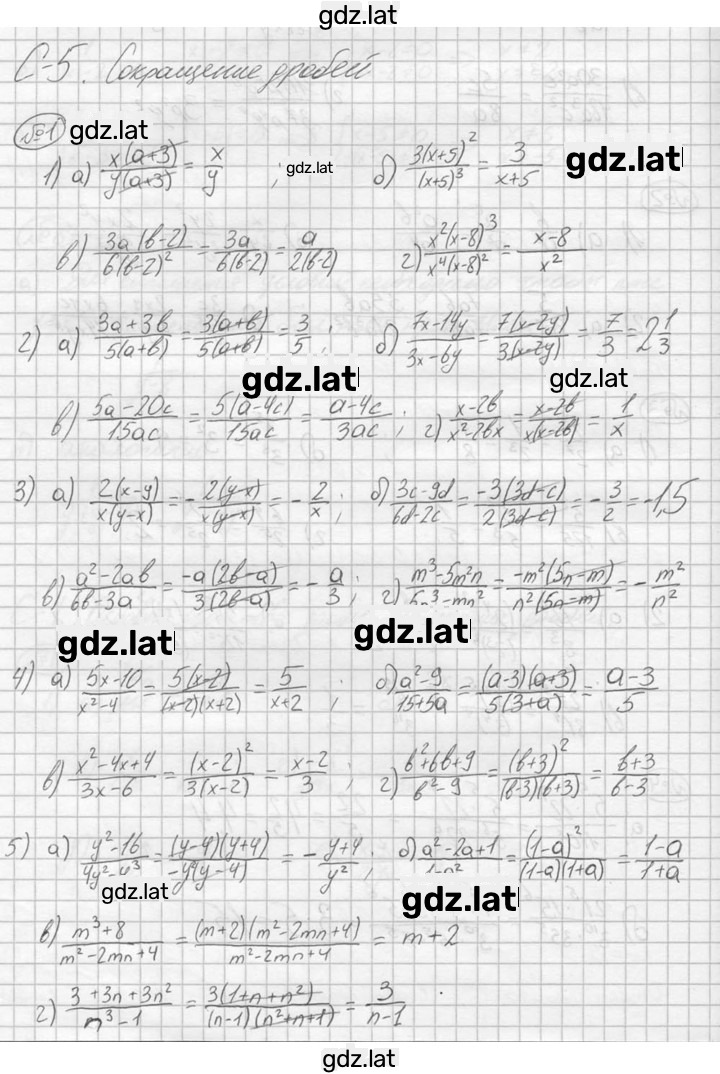 gdz.lat
С-5. Сокращение дробей
№1 gdz.lat
1) а) x(a+3)/y(a+3) = x/y ; gdz.lat б) 3(x+5)²/(x+5)³ = 3/x+5 gdz.lat
в) 3a(b-2)/6(b-2)² = 3a/6(b-2) = a/2(b-2) г) x²(x-8)³/x⁴(x-8)² = x-8/x²
2) а) 3a+3b/5(a+b) = 3(a+b)/5(a+b) = 3/5 ; б) 7x-14y/3x-6y = 7(x-2y)/3(x-2y) = 7/3 = 2 1/3
gdz.lat gdz.lat
в) 5a-20c/15ac = 5(a-4c)/15ac = a-4c/3ac ; г) x-2b/x²-2bx = x-2b/x(x-2b) = 1/x
3) а) 2(x-y)/x(y-x) = - 2(y-x)/x(y-x) = - 2/x ; б) 3c-9d/6d-2c = -3(3d-c)/2(3d-c) = - 3/2 = -1,5
в) a²-2ab/6b-3a = -a(2b-a)/3(2b-a) = - a/3 ; г) m³-5m²n/5n³-mn² = -m²(5n-m)/n²(5n-m) = - m²/n²
gdz.lat gdz.lat
4) а) 5x-10/x²-4 = 5(x-2)/(x-2)(x+2) = 5/x+2 ; б) a²-9/15+5a = (a-3)(a+3)/5(3+a) = a-3/5
в) x²-4x+4/3x-6 = (x-2)²/3(x-2) = x-2/3 ; г) b²+6b+9/b²-9 = (b+3)²/(b-3)(b+3) = b+3/b-3
5) а) y²-16/4y²-y³ = (y-4)(y+4)/-y²(y-4) = - y+4/y² ; б) a²-2a+1/1-a² = (1-a)²/(1-a)(1+a) = 1-a/1+a
gdz.lat gdz.lat
в) m³+8/m²-2mn+4 = (m+2)(m²-2mn+4)/m²-2mn+4 = m+2
г) 3+3n+3n²/n³-1 = 3(1+n+n²)/(n-1)(n²+n+1) = 3/n-1
gdz.lat